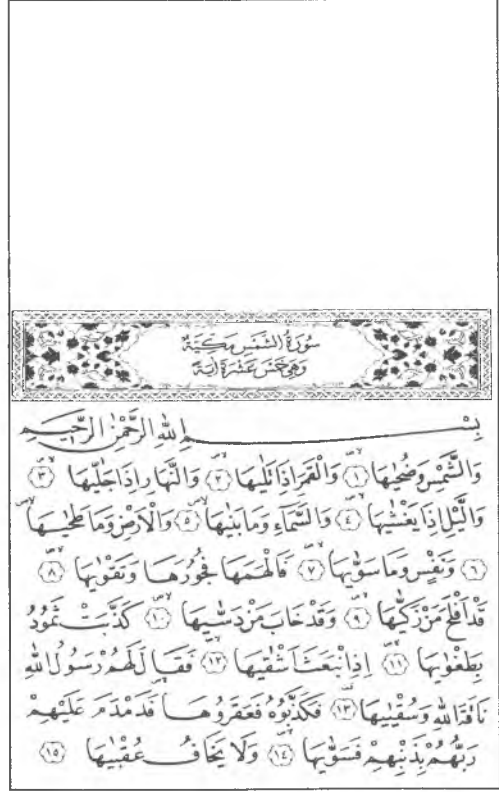 سُورَةُ الشَّمْسِ مَكِّيَّةٌ
وَهِيَ خَمْسَ عَشْرَةَ اٰيَةً
بِسْمِ اللهِ الرَّحْمٰنِ الرَّحٖيمِ
وَالشَّمْسِ وَضُحٰيهَاۙ ﴿١﴾ وَالْقَمَرِ اِذَا تَلٰيهَاۙ ﴿٢﴾ وَالنَّهَارِ اِذَا جَلّٰيهَاۙ ﴿٣﴾
وَالَّيْلِ اِذَا يَغْشٰيهَاۙ ﴿٤﴾ وَالسَّمَٓاءِ وَمَا بَنٰيهَاۙ ﴿٥﴾ وَالْاَرْضِ وَمَا طَحٰيهَاۙ
﴿٦﴾ وَنَفْسٍ وَمَا سَوّٰيهَاۙ ﴿٧﴾ فَاَلْهَمَهَا فُجُورَهَا وَتَقْوٰيهَاۙ ﴿٨﴾
قَدْ اَفْلَحَ مَنْ زَكّٰيهَاۙ ﴿٩﴾ وَقَدْ خَابَ مَنْ دَسّٰيهَاۜ ﴿١٠﴾ كَذَّبَتْ ثَمُودُ
بِطَغْوٰيهَاۙ ﴿١١﴾ اِذِ انْبَعَثَ اَشْقٰيهَاۙ ﴿١٢﴾ فَقَالَ لَهُمْ رَسُولُ اللهِ
نَاقَةَ اللهِ وَسُقْيٰيهَاۜ ﴿١٣﴾ فَكَذَّبُوهُ فَعَقَرُوهَاۙ فَدَمْدَمَ عَلَيْهِمْ
رَبُّهُمْ بِذَنْبِهِمْ فَسَوّٰيهَاۙ ﴿١٤﴾ وَلَا يَخَافُ عُقْبٰيهَا ﴿١٥﴾